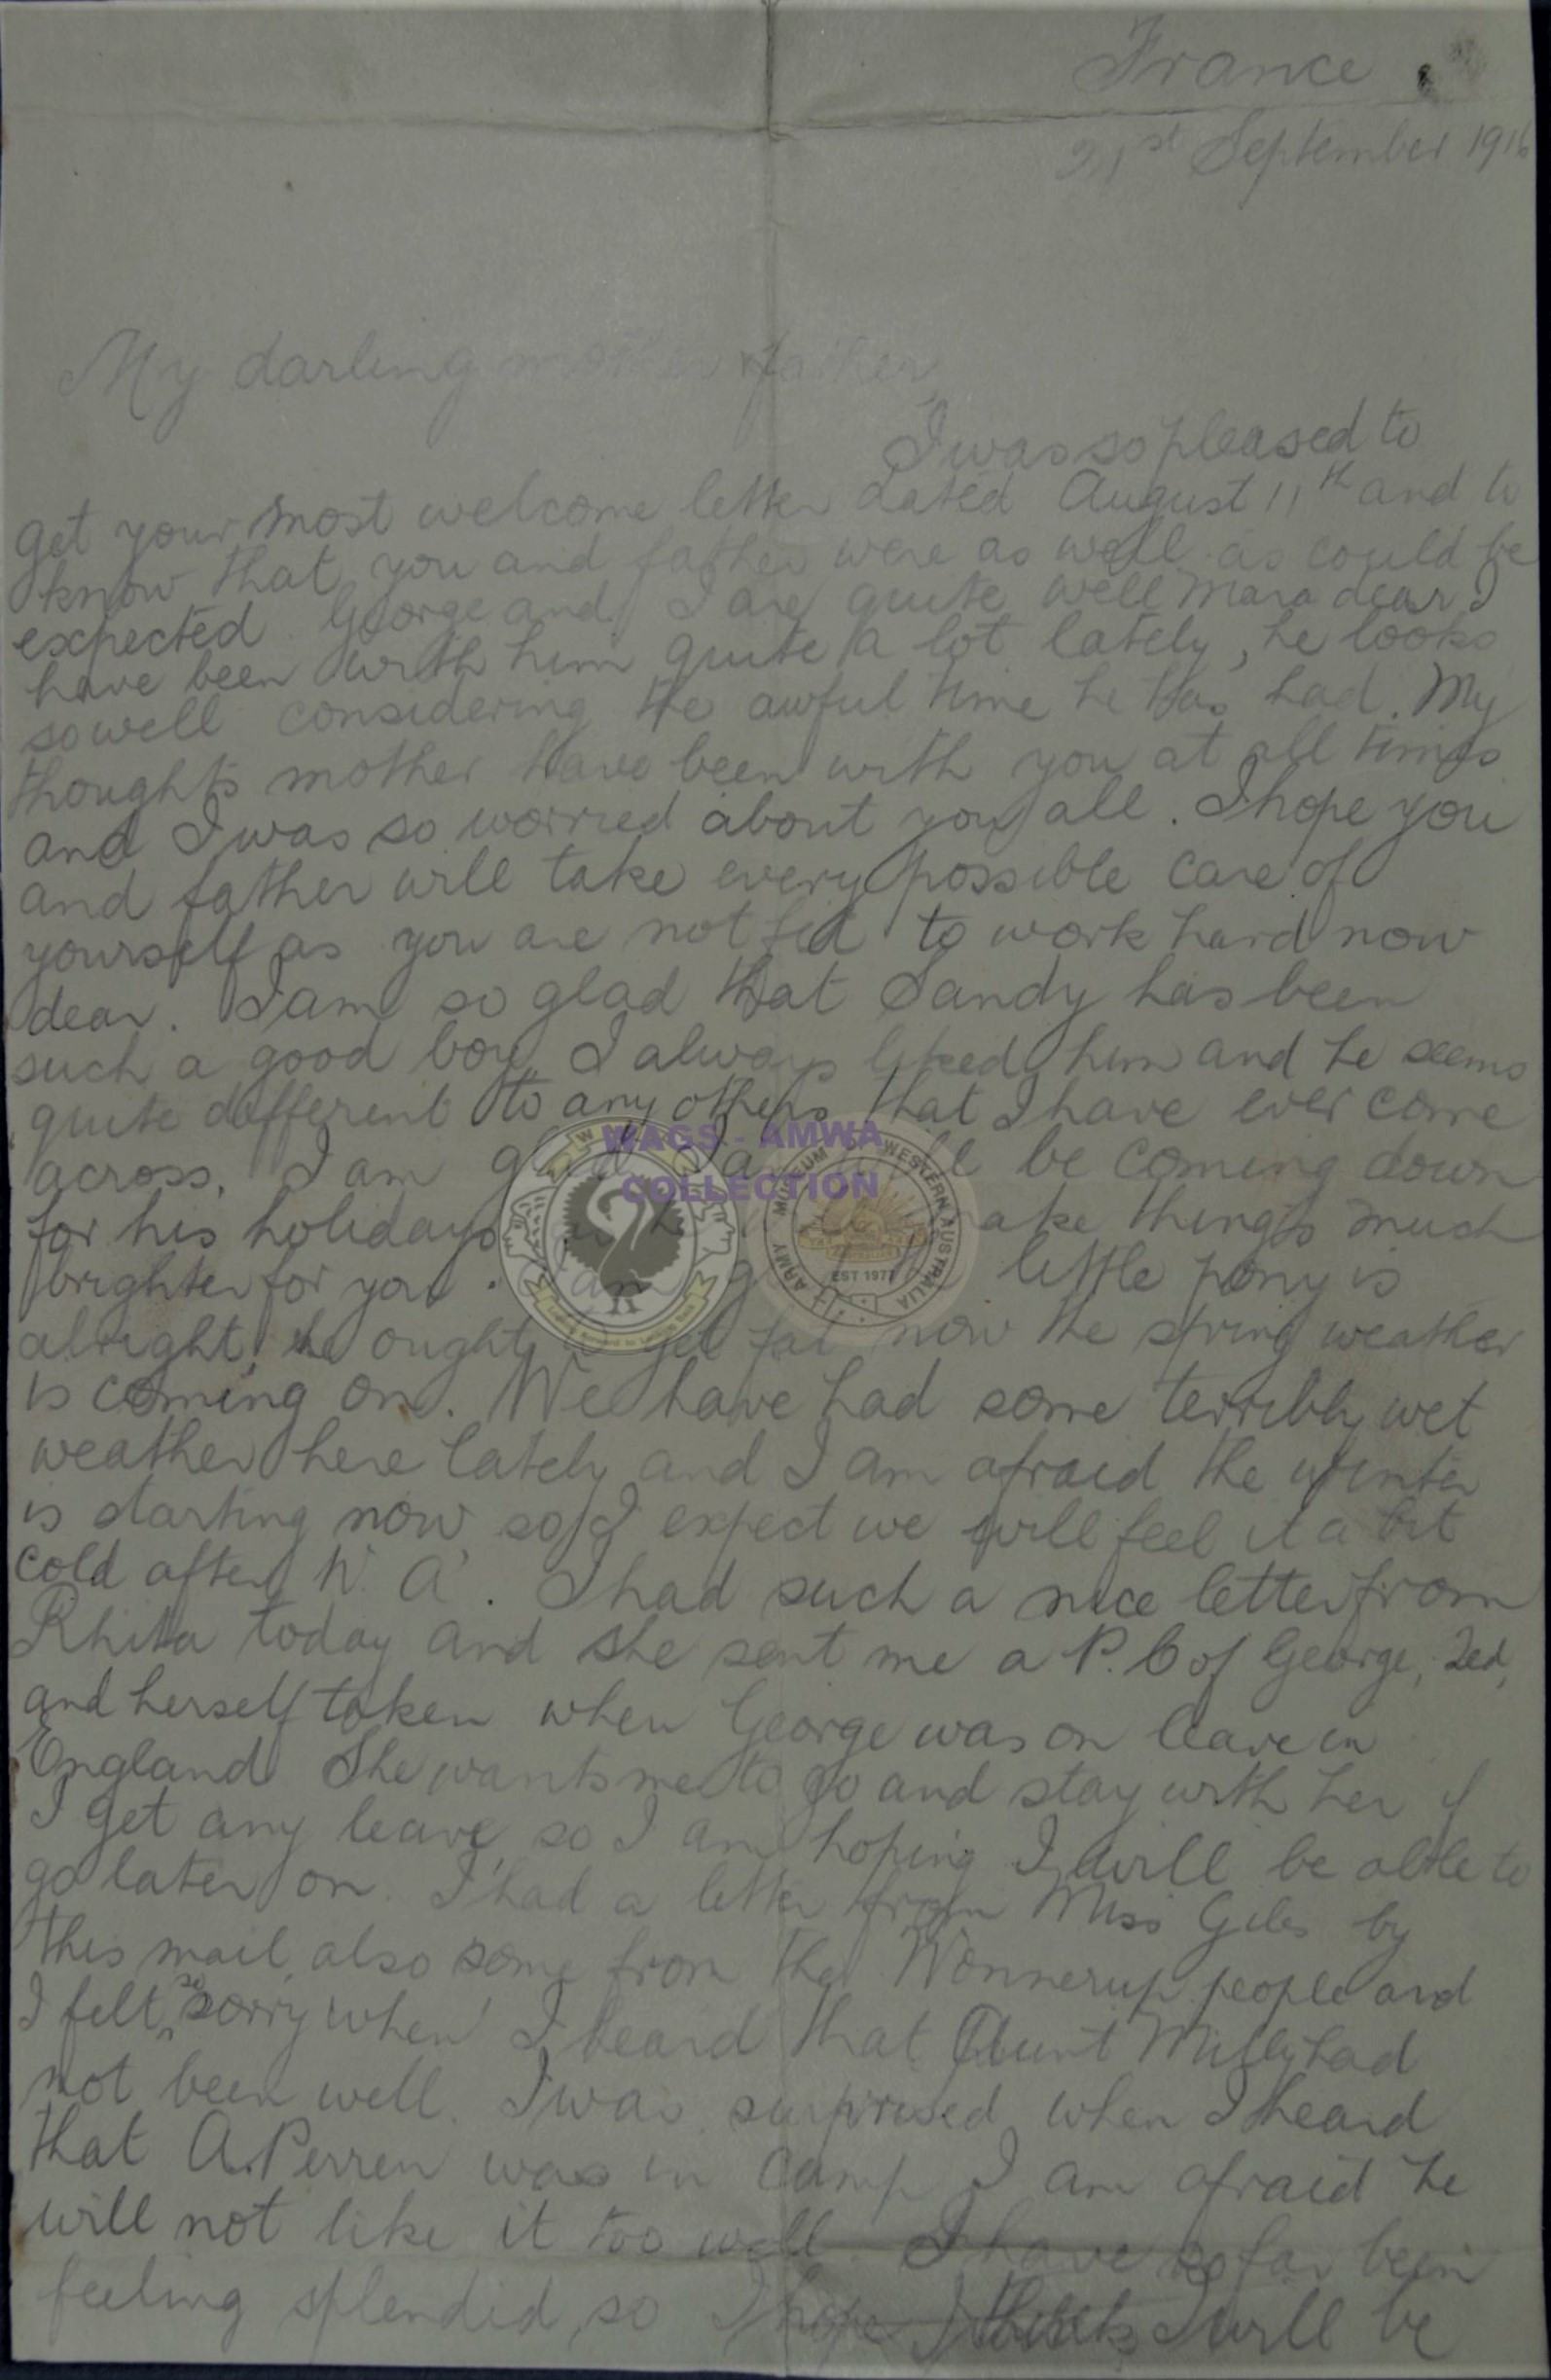 France
21st September 1916
My darling mother & father,
I was so pleased to
get your most welcome letter dated August 11th and to
know that you and father were as well as could be
expected. George and I are quite well Mara dear I
have been with him quite a lot lately, he looks
so well considering the awful time he has had. My
thoughts mother have been with you at all times
and I was so worried about you all. I hope you
and father will take every possible care of
yourself as you are not fit to work hard now
dear. I am so glad that Sandy has been
such a good boy, I always liked him and he seems
quite different to any others that I have ever come
across. I am be coming down
for his holidays things much
brighter for you. little pony is
alright, he ought fat now the spring weather
is coming on. We have had some terribly wet
weather here lately and I am afraid the winter
is starting now so I expect we will feel it a bit
cold after W. A. I had such a nice letter from
Rhita today and she sent me a P.C of George, Ted,
and herself taken when George was on leave in
England She wants me to go and stay with her if
I get any leave, so I am hoping I will be able to
go later on. I had a letter from Miss Giles by
this mail, also some from the Wonnerup people and
I felt so sorry when I heard that Aunt Milly had
not been well. I was surprised when I heard
that A. Perren was in camp I am afraid he
will not like it too well. I have so far been
feeling splendid, so I hope I will be
WAGS - AMWA
COLLECTION
ARMY MUSEUM OF WESTERN AUSTRALIA
EST 1977